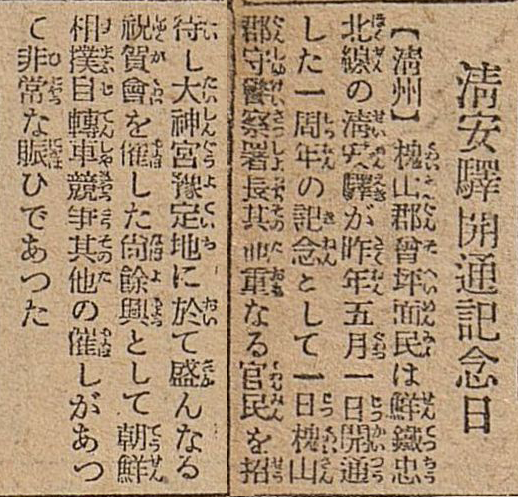 淸安驛開通記念日
【淸州】槐山郡曾坪面民は鮮鐵忠
北線の淸安驛が昨年五月一日開通
した一周年の記念として一日槐山
郡守警察署長其他重なる官民を招
待し大神宮豫定地に於て盛んなる
祝賀會を催した尙餘興として朝鮮
相撲自轉車競爭其他の催しがあつ
て非常な賑ひであつた